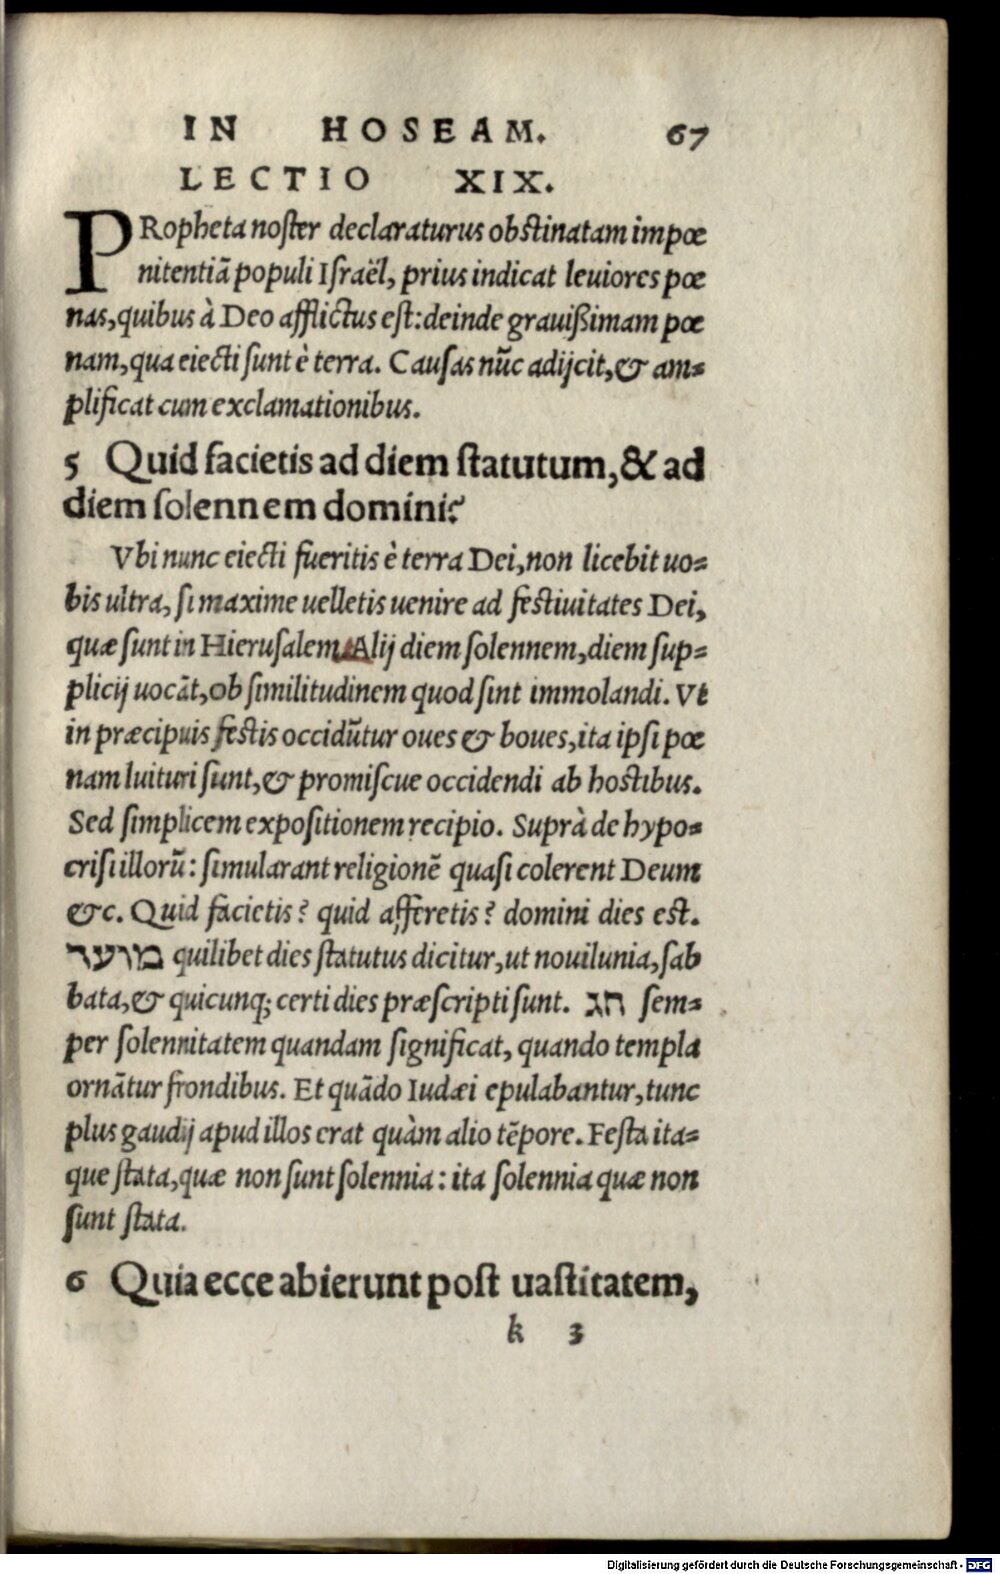 IN HOSEAM. 67
LECTIO XIX.
PRopheta noſter declaraturus obſtinatam impœ
nitentiā populi Iſraël, prius indicat leuiores pœ
nas, quibus à Deo afflictus eſt: deinde grauiſſimam pœ
nam, qua eiecti ſunt è terra. Cauſas nūc adijcit, & am⸗
plificat cum exclamationibus.
5 Quid facietis ad diem ſtatutum, & ad
diem ſolennem domini?
Vbi nunc eiecti fueritis è terra Dei, non licebit uo⸗
bis ultra, ſi maxime uelletis uenire ad feſtiuitates Dei,
quæ ſunt in Hieruſalem. Alij diem ſolennem, diem ſup⸗
plicij uocāt, ob ſimilitudinem quod ſint immolandi. Vt
in præcipuis feſtis occidūtur oues & boues, ita ipſi pœ
nam luituri ſunt, & promiſcue occidendi ab hoſtibus.
Sed ſimplicem expoſitionem recipio. Suprà de hypo⸗
criſi illorū: ſimularant religionē quaſi colerent Deum
&c. Quid facietis? quid afferetis? domini dies eſt.
מועד quilibet dies ſtatutus dicitur, ut nouilunia, ſab
bata, & quicunq; certi dies præſcripti ſunt. חג ſem⸗
per ſolennitatem quandam ſignificat, quando templa
ornātur frondibus. Et quādo Iudæi epulabantur, tunc
plus gaudij apud illos erat quàm alio tēpore. Feſta ita⸗
que ſtata, quæ non ſunt ſolennia: ita ſolennia quæ non
ſunt ſtata.
6 Quia ecce abierunt poſt uaſtitatem,
k 3
Digitalisierung gefördert durch die Deutsche Forschungsgemeinschaft - DFG